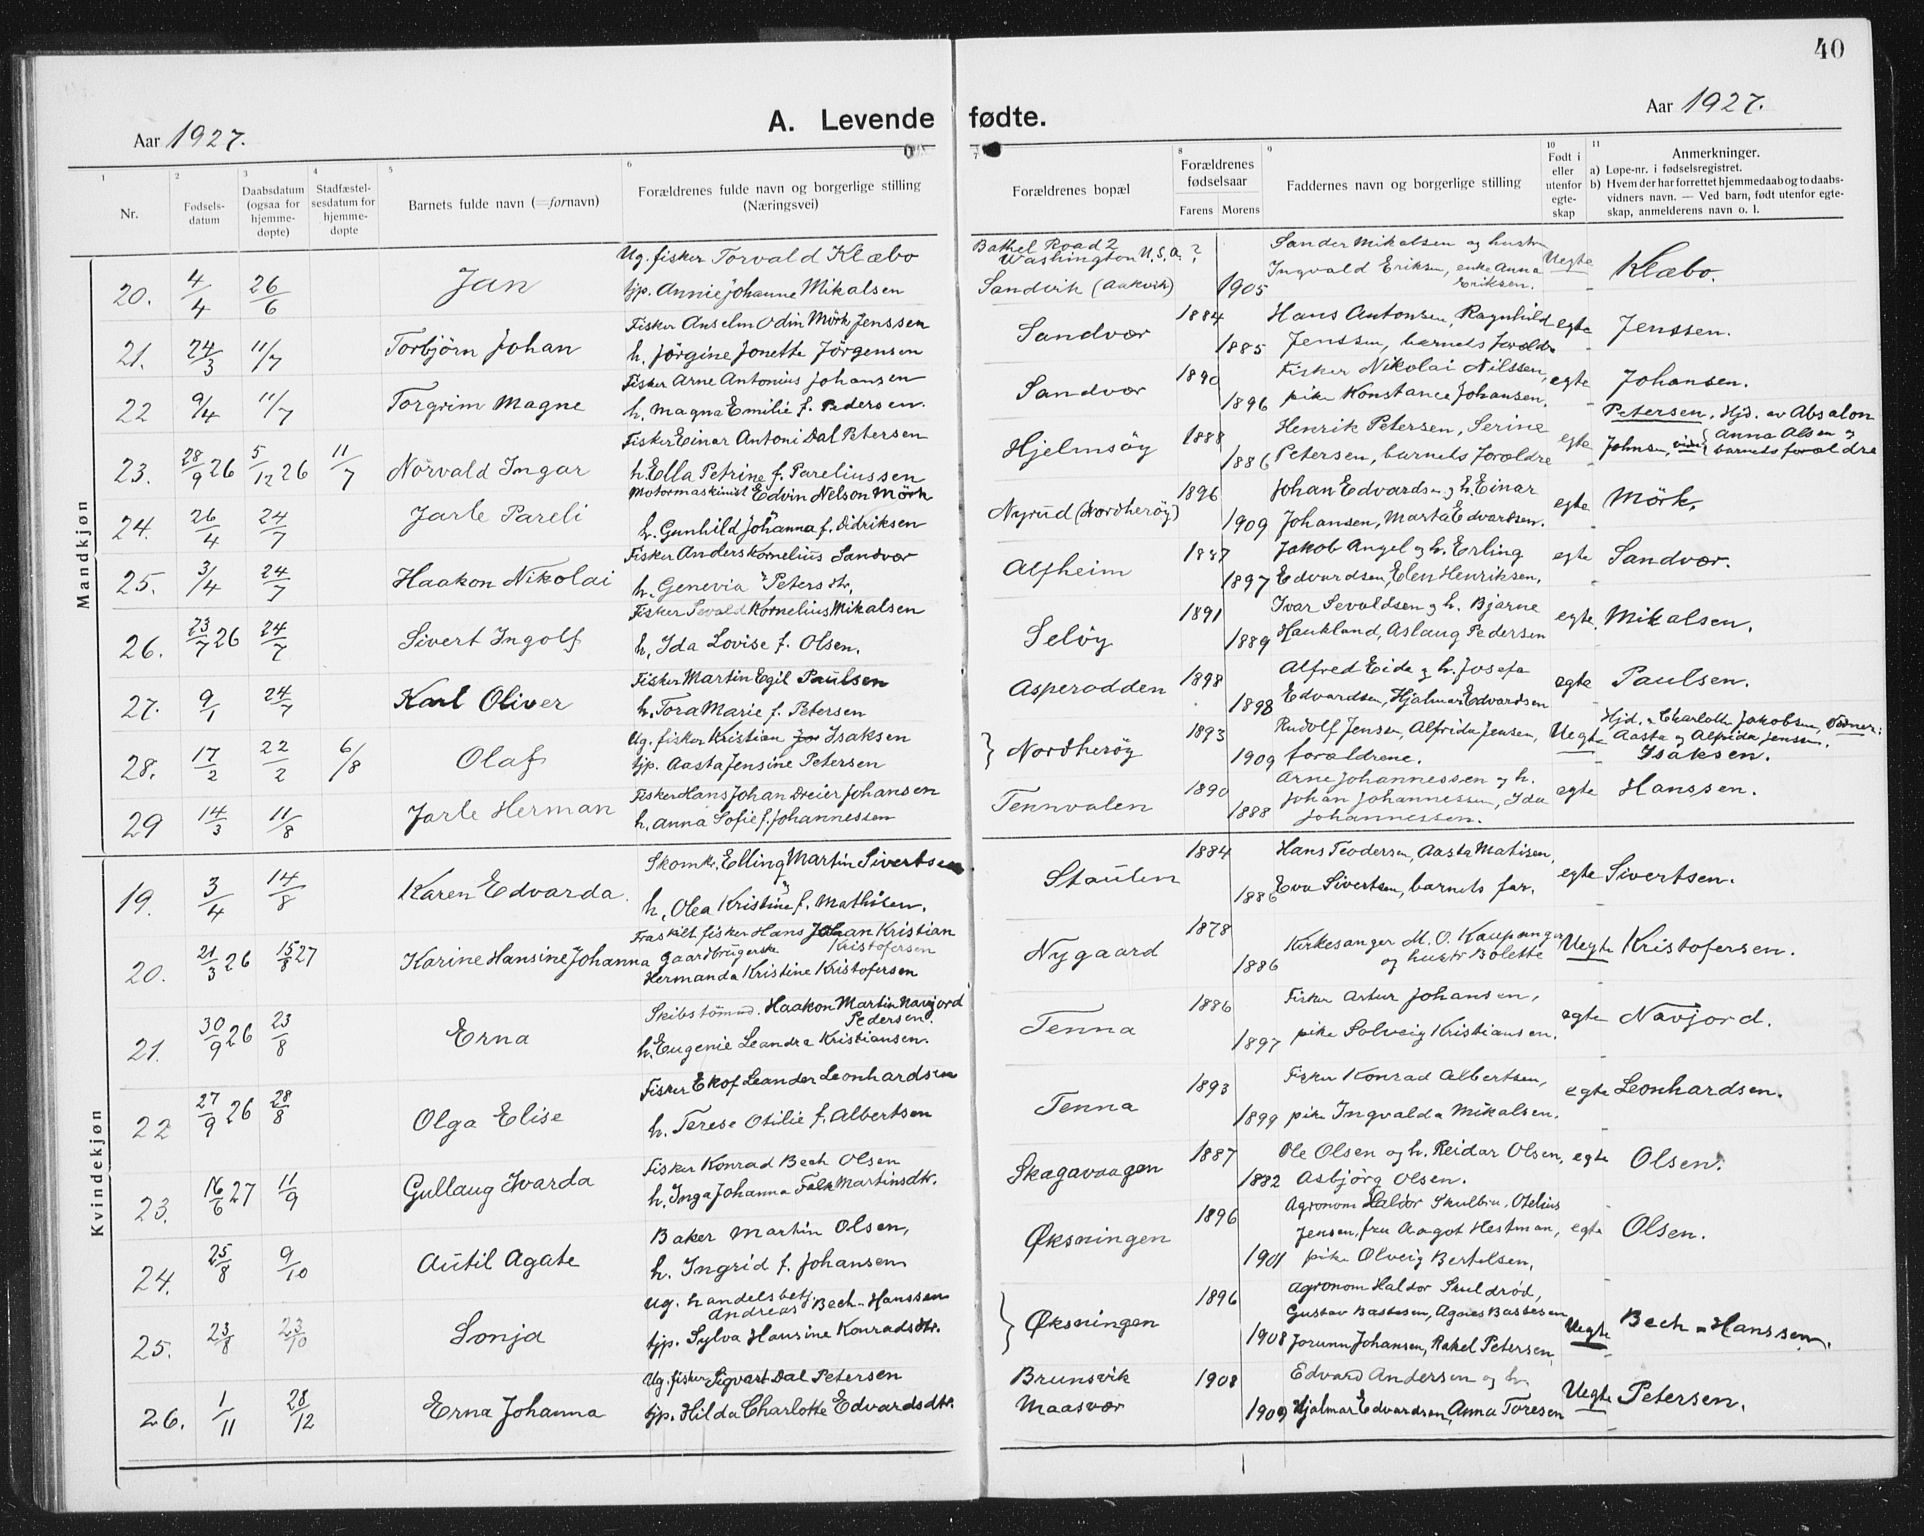 40
Aar 1927.
A. Levende fødte.
Aar 1927.
1 2 3 4 5 6 7 8 9 10 11
Nr.
Fødsels-datum
Daabsdatum (ogsaa for hjemme-døpte)
Stadfæstel-sesdatum for hjemme-døpte
Barnets fulde navn (=fornavn)
Forældrenes fulde navn og borgerlige stilling (Næringsvei)
Forældrenes bopæl
Forældrenes fødselsaar
Farens Morens
Faddernes navn og borgerlige stilling
Født i eller utenfor egte-skap
Anmerkninger.
a) Løpe-nr. i fødselsregistret.
b) Hvem der har forrettet hjemmedaab og to daabs-vidners navn. — Ved barn, født utenfor egte-skap, anmelderens navn o. l.
Mandkjøn
20. 4/4 26/6 Jan
Ug. fisker Torvald Klæbo
tjp. Annie Johanne Mikalsen
Bathel Road 2 Washington U.S.A. ?
Sandvik (Aakvik) 1905
Sander Mikalsen og hustru
Ingvald Eriksen, enke Anna Eriksen.
Uegte Klæbo.
21. 24/3 11/7 Torbjörn Johan
Fisker Anselm Odin Mörk Jenssen
h. Jörgine Jonette Jörgensen
Sandvær 1884 1885
Hans Antonsen, Ragnhild
Jenssen, barnets foreldre
egte Jenssen.
22 9/4 11/7 Torgrim Magne
Fisker Arne Antonius Johansen
h. Magna Emilie f. Pedersen.
Sandvær 1890 1896
Fisker Nikolai Nilssen,
pike Konstance Johansen.
egte Johansen.
23. 28/9 26 5/12 26 11/7 Nörvald Ingar
Fisker Einar Antoni Dal Petersen
h. Ella Petrine f. Pareliussen
Hjelmsöy 1888 1886
Henrik Petersen, Serine
Petersen, barnets foreldre
egte Petersen. Hjd. av Absalon
Johnsen, vidn. Anna Olsen og
barnets foreldre
24. 26/4 24/7 Jarle Pareli
Motormaskinist Edvin Nelson Mörk
h. Gunhild Johanna f. Didriksen
Nyrud (Nordheröy) 1896 1909
Johan Edvardsen og h. Einar
Johansen, Marta Edvardsen.
egte Mörk.
25. 3/4 24/7 Haakon Nikolai
Fisker Anders Kornelius Sandvær
h. Genevia Petersdtr.
Alfheim 1887 1897
Jakob Angel og h. Erling
Edvardsen, Elen Henriksen.
egte Sandvær.
26. 23/7 26 24/7 Sivert Ingolf
Fisker Sevald Kornelius Mikalsen
h. Ida Lovise f. Olsen.
Selöy 1891 1889
Ivar Sevaldsen og h. Bjarne
Haukland, Aslaug Pedersen
egte. Mikalsen.
27. 9/1 24/7 Karl Oliver
Fisker Martin Egil Paulsen
h. Tora Marie f. Petersen
Asperodden 1898 1898
Alfred Eide og h. Josefa
Edvardsen, Hjalmar Edvardsen
egte Paulsen.
28. 17/2 22/2 6/8 Olaf
Ug. fisker Kristian Isaksen
tjp. Aasta Jensine Petersen
Nordheröy 1893 1909
Rudolf Jensen, Alfrida Jensen,
foreldrene.
Uegte Hjd. Charlotte Jakobsen, Vidner:
Aasta og Alfrida Jensen.
Isaksen.
29 14/3 11/8 Jarle Herman
Fisker Hans Johan Dreier Johansen
h. Anna Sofie f. Johannessen
Tennvalen 1890 1888
Arne Johannessen og h.
Johan Johannessen, Ida
Johannessen.
egte Hanssen.
Kvindekjøn
19. 3/4 14/8 Karen Edvarda.
Skomk. Elling Martin Sivertsen
h. Olea Kristine f. Mathisen.
Staulen 1884 1886
Hans Teodersen, Aasta Matisen,
Eva Sivertsen, barnets far.
egte Sivertsen.
20. 21/3 26 15/8 27 Karine Hansine Johanna
Fraskilt fisker Hans Johan Kristian Kristofersen
Gaardbrugerske
Hermanda Kristine Kristofersen
Nygaard 1878 1886
Kirkesanger M. O. Kaupanger
og hustr Bolette
Uegte Kristofersen.
21. 30/9 26 23/8 Erna
Skibstömmd. Haakon Martin Navjord
Pedersen.
h. Eugenie Leandra Kristiansen.
Tenna 1886 1897
Fisker Artur Johansen,
pike Solveig Kristiansen.
egte Navjord.
22 27/9 26 28/8 Olga Elise
Fisker Ekof Leander Leonhardsen
h. Terese Otilie f. Albertsen
Tenna 1893 1899
Fisker Konrad Albertsen,
pike Ingvalda Mikalsen.
egte Leonhardsen.
23. 16/6 27 11/9 Gullaug Ivarda
Fisker Konrad Bech Olsen
h. Inga Johanna Falk Martinsdtr.
Skagavaagen 1887 1882
Ole Olsen og h. Reidar Olsen,
Asbjörg Olsen.
egte Olsen.
24. 25/8 9/10 Autil Agate
Baker Martin Olsen,
h. Ingrid f. Johansen
Øksningen 1896 1901
Agronom Haldor Skulbru, Otelius
Jensen, fru Aagot Hestman,
pike Olveig Bertelsen.
egte Olsen.
25. 23/8 23/10 Sonja
Ug. handelsbetj.
Andreas Bech-Hanssen
tjp. Sylva Hansine Konradsdtr.
Øksningen 1896 1908
Agronom Haldor Skuldrød,
Gustav Bastesen, Agnes Bastesen
Jorunn Johansen, Rakel Petersen.
Uegte Bech-Hanssen.
26. 1/11 28/12 Erna Johanna
Ug. fisker Sigvart Dal Petersen
tjp. Hilda Charlotte Edvardsdtr.
Brunsvik
Maasvær 1908 1909
Edvard Andersen og h.
Hjalmar Edvardsen, Anna Toresen
Uegte Petersen.